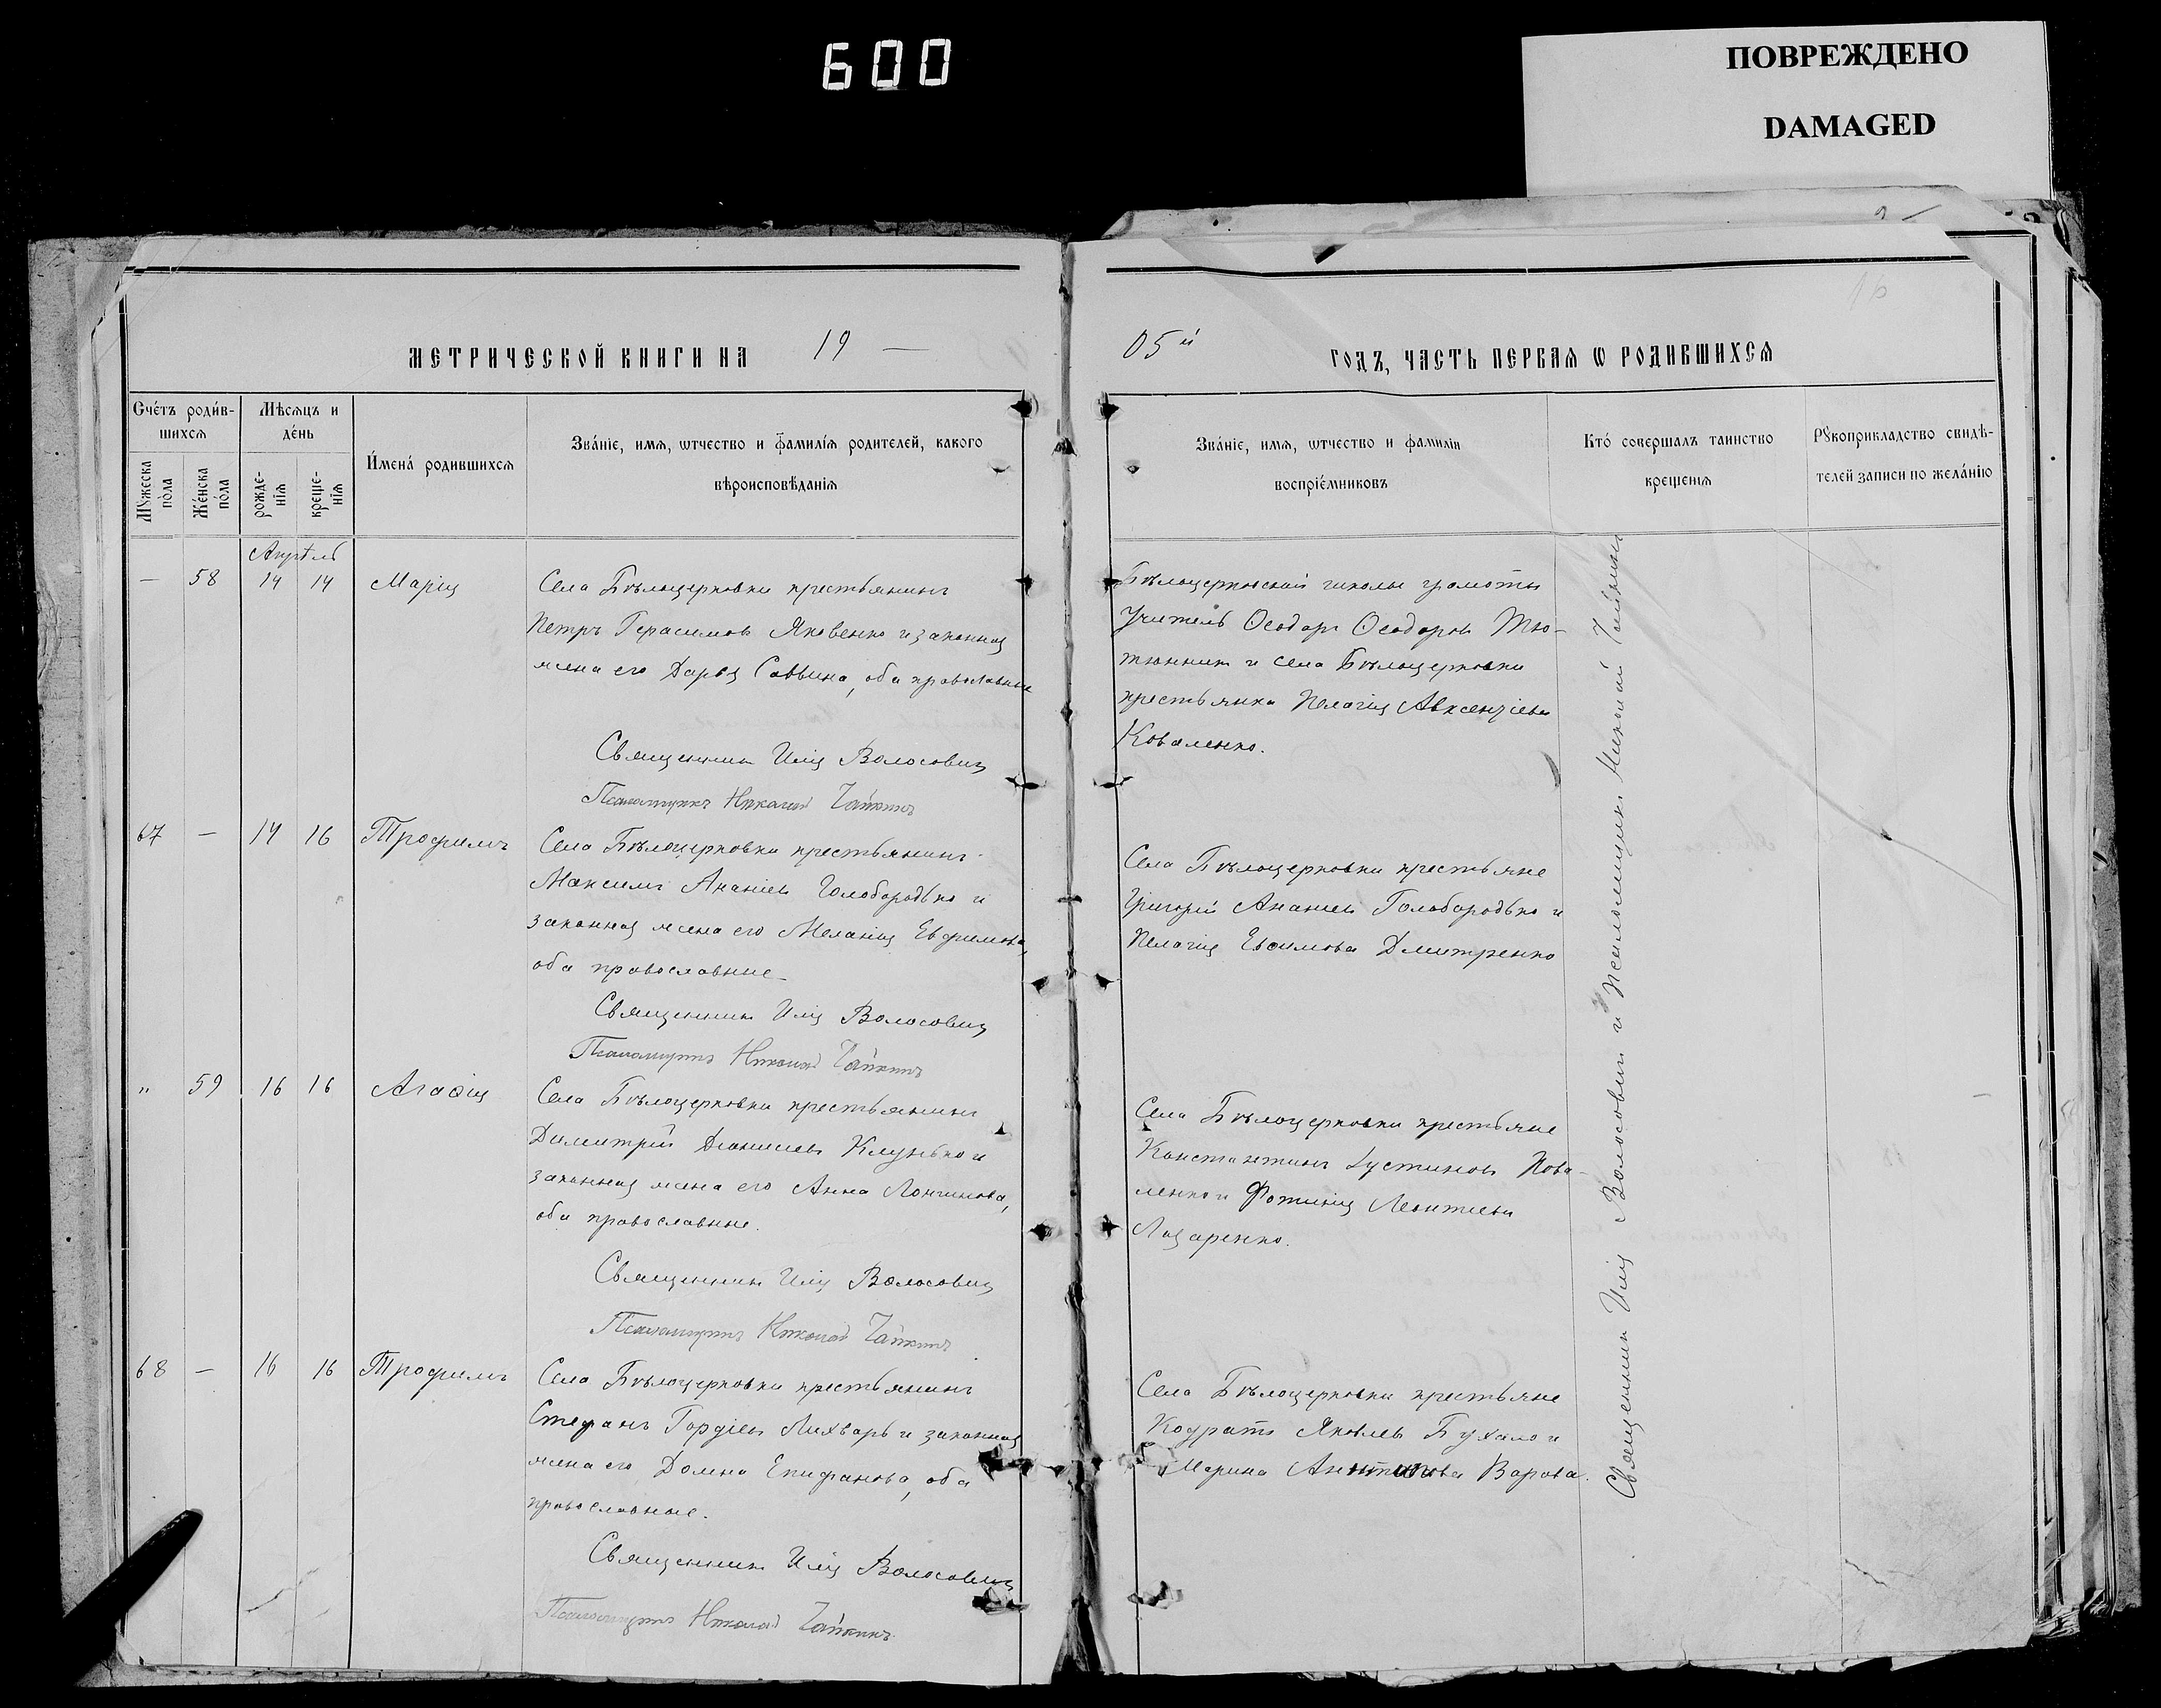 600
ПОВРЕЖДЕНО
DAMAGED
МЕТРИЧЕСКОЙ КНИГИ НА 19 —
05й ГОДЪ, ЧАСТЬ ПЕРВАЯ Ѡ РОДИВШИХСЯ
Счéтъ роди́в-
шихсѧ
Мѣсѧцъ и
де́нь
Мꙋжеска
по́ла
Же́нска
по́ла
рожде-
нїѧ
креще-
нїѧ
И́мена́ родившихсѧ
Зва́нїе, имѧ, ѡтчество и фамилі́ѧ родителей, какого
вѣроисповѣданїѧ
Зва́нїе, имѧ, ѡтчество и фамилїи
воспрїе́мниковъ
Кто́ совершалъ таинство
крещенїѧ
Рꙋкоприкладство свидѣ-
телей записи по жела́нїю
Апрѣль
— 58 14 14 Марія
Села Бѣлоцерковки крестьянинъ
Петръ Герасимовъ Яковенко и законная
жена его Дарья Саввина, оба православные
Священникъ Илія Волосовичъ
Псаломщикъ Николай Чайкинъ
Бѣлоцерковской школы грамоты
Учитель Ѳеодоръ Ѳеодоровъ Тю-
тюнникъ и села Бѣлоцерковки
крестьянка Пелагія Авксентіева
Коваленко.
67 — 14 16 Трофимъ
Села Бѣлоцерковки крестьянинъ
Максимъ Ананіевъ Голобородько и
законная жена его Меланія Евфимова,
оба православные
Священникъ Илія Волосовичъ
Псаломщикъ Николай Чайкинъ
Села Бѣлоцерковки крестьяне
Григорій Ананіевъ Голобородько и
Пелагія Евѳимова Дмитренко
„ 59 16 16 Агаѳія
Села Бѣлоцерковки крестьянинъ
Димитрій Діонисіевъ Клунько и
законная жена его Анна Лонгинова,
оба православные.
Священникъ Илія Волосовичъ
Псаломщикъ Николай Чайкинъ
Села Бѣлоцерковки крестьяне
Константинъ Іустиновъ Кова-
ленко и Фотинія Леонтіева
Лазаренко.
68 — 16 16 Трофимъ
Села Бѣлоцерковки крестьянинъ
Стефанъ Гордіевъ Лихварь и законная
жена его Домна Епифанова, оба
православные.
Священникъ Илія Волосовичъ
Псаломщикъ Николай Чайкинъ
Села Бѣлоцерковки крестьяне
Кодратъ Яковлевъ Бухало и
Марина Варава.
Священникъ Илія Волосовичъ и Псаломщикъ Николай Чайкинъ